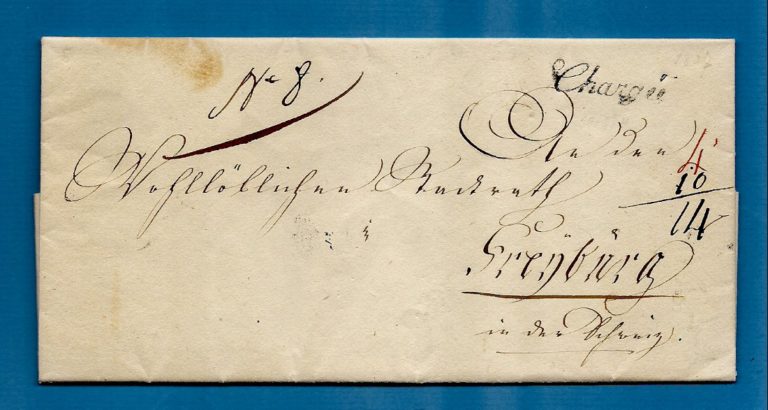 No 8.
Chargé
An den
4
Wohllöblichen Stadtrath
10
14
Freÿbürg
in der Schweiz.